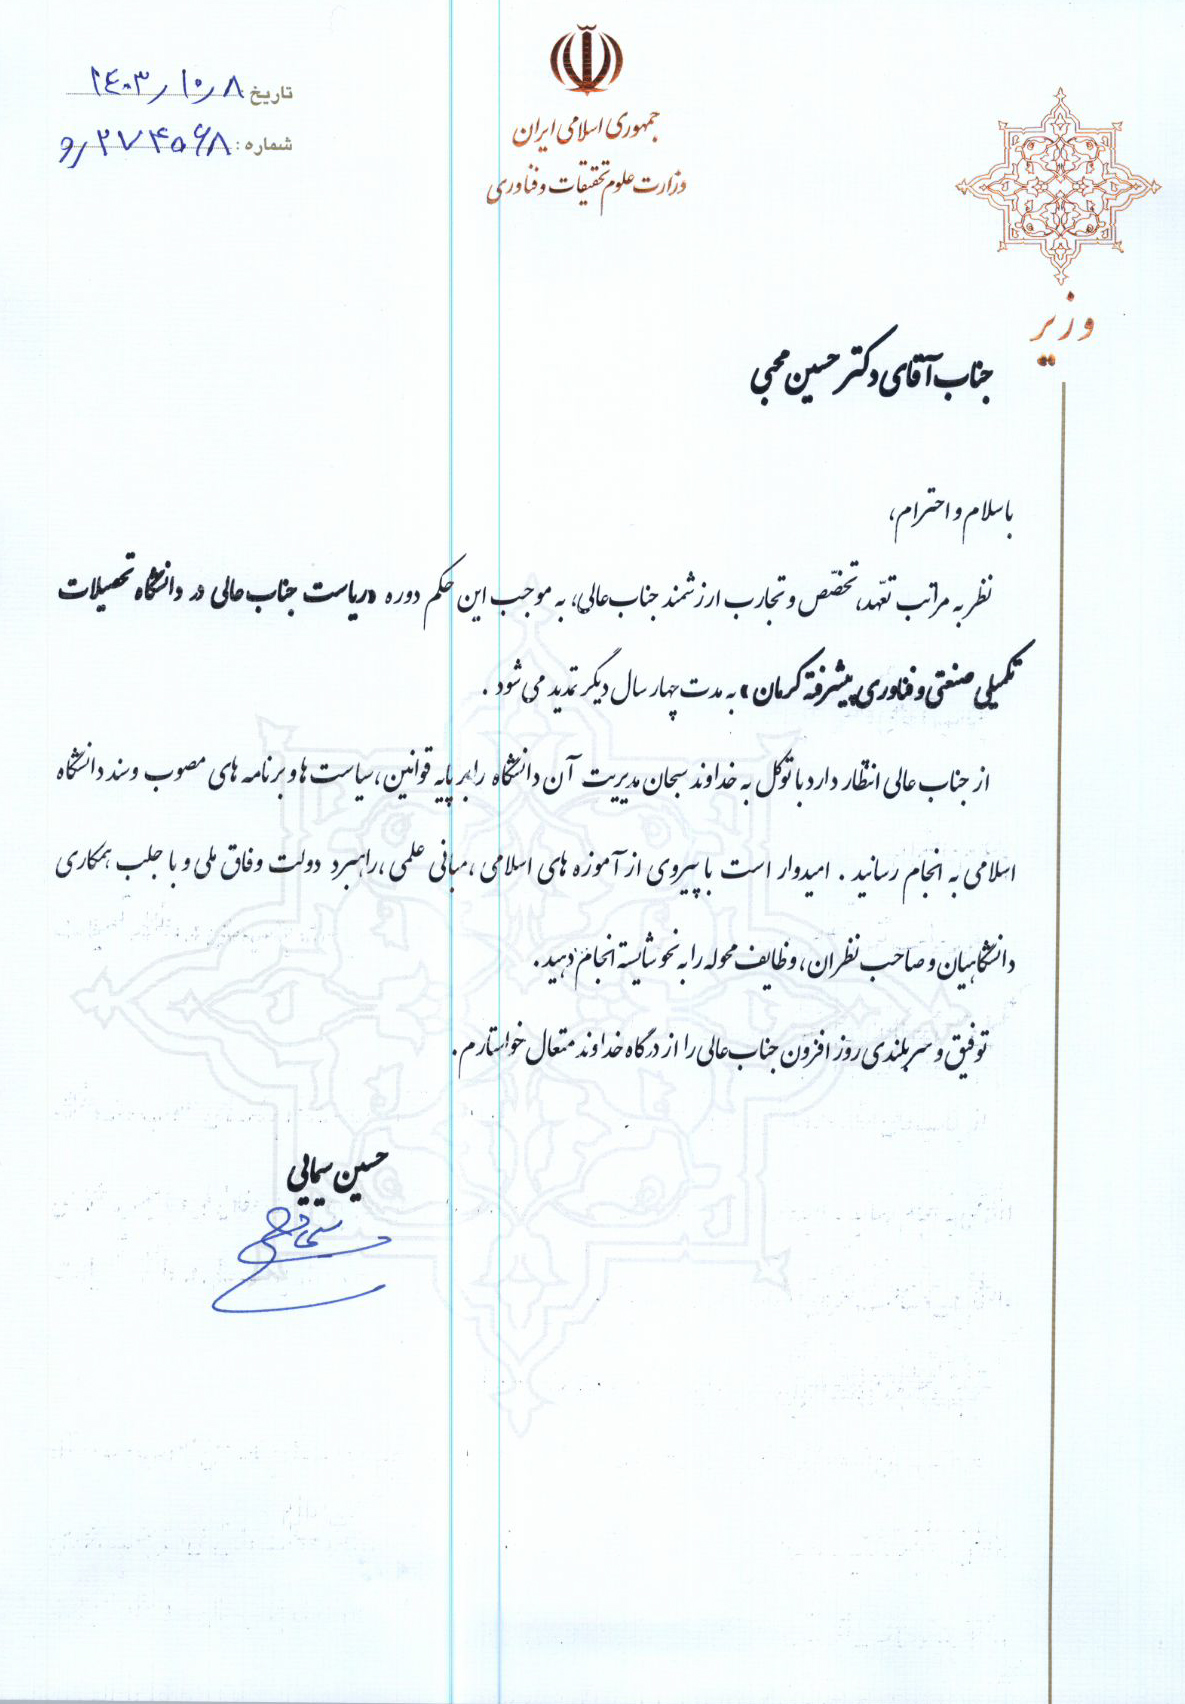 جمهوری اسلامی ایران
وزارت علوم تحقیقات و فناوری
تاریخ: ۱۴۰۳/۱۰/۸
شماره: ۲۷۴۵۶۸/و
وزیر
جناب آقای دکتر حسین محبی
با سلام و احترام،
نظر به مراتب تعهّد، تخصّص و تجارب ارزشمند جناب‌عالی، به موجب این حکم دوره «ریاست جناب عالی در دانشگاه تحصیلات
تکمیلی صنعتی و فناوری پیشرفته کرمان» به مدت چهار سال دیگر تمدید می شود.
از جناب عالی انتظار دارد با توکل به خداوند سبحان مدیریت آن دانشگاه را بر پایه قوانین، سیاست ها و برنامه های مصوب و سند دانشگاه
اسلامی به انجام رسانید. امیدوار است با پیروی از آموزه های اسلامی، مبانی علمی، راهبرد دولت وفاق ملی و با جلب همکاری
دانشگاهیان و صاحب نظران، وظایف محوله را به نحو شایسته انجام دهید.
توفیق و سربلندی روز افزون جناب‌عالی را از درگاه خداوند متعال خواستارم.
حسین سیمایی